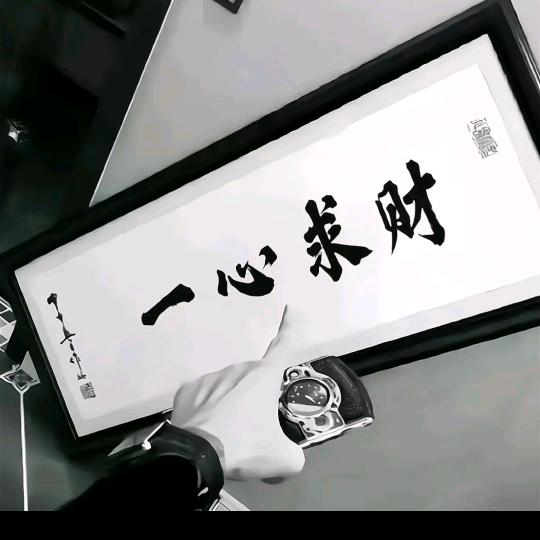 一心求财